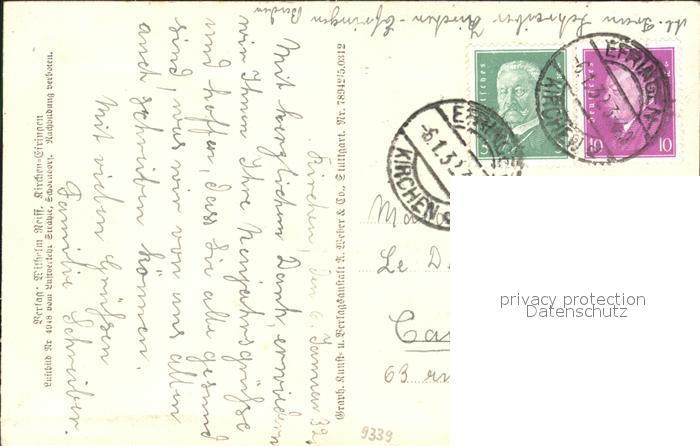 M. Fram Schreiber Kirchen-Efringen
Baden
Kirchen, den 6. Januar 32.
Mit herzlichem Dank, erwiedern
wir Ihnen Ihre Neujahrsgrüsse
und hoffen, dass Sie alle gesund
sind, was wir von uns allen
auch schreiben können.
Mit vielen Grüssen
Familie Schreiber.
Verlag: Wilhelm Reiff, Kirchen-Efringen
Luftbild Nr. 4918 vom Luftverkehr Strähle, Schorndorf. Nachbildung verboten.
Graph. Kunst- u. Verlagsanstalt A. Weber & Co., Stuttgart. Nr. 78942/5.0312
Deutsches
5
Deutsches
10 10
EFRINGEN
6.1.32
KIRCHEN
EFRINGEN
-6.1.32
KIRCHEN
Le D
Ca
63 ru
privacy protection
Datenschutz
9339